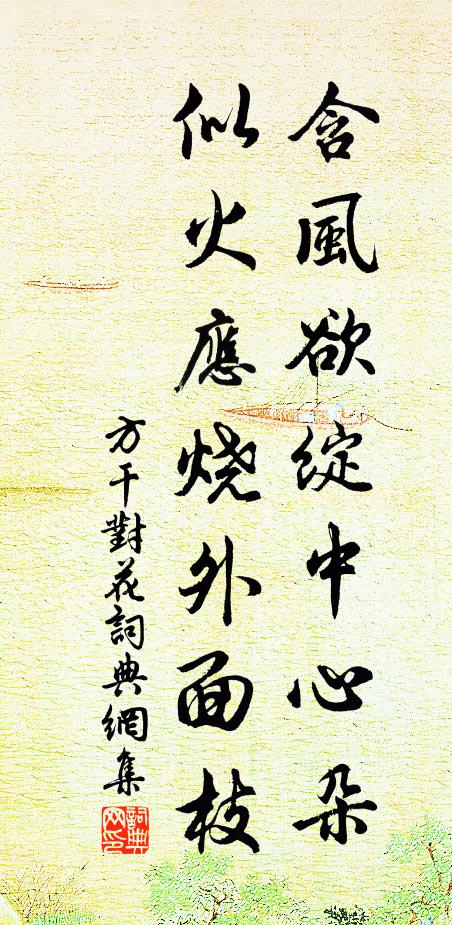 含風欲綻中心朵
似火應烧外面枝
方干對花詞典網集
詞典网印